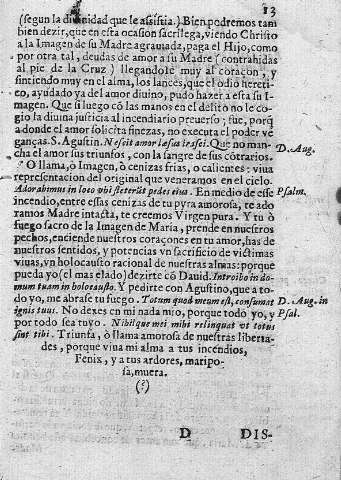 13
(segun la dignidad que le assistia.) Bien podremos tam
bien dezir, que en esta ocasion sacrilega, viendo Christo
a la Imagen de su Madre agrauiada, paga el Hijo, como
por otra tal, deudas de amor a su Madre (contrahidas
al pie de la Cruz) llegandole muy al coraçon, y
sintiendo muy en el alma, los lances, que el odio hereti-
co, ayudado ya del amor diuino, pudo hazer a esta su I-
magen. Que si luego cō las manos en el delito no le co-
gio la diuina justicia al incendiario peruerso; fue, porq̄
a donde el amor solicita finezas, no executa el poder ve
ganças. S. Agustin. Nescit amor læsus irasci. Que no man-
cha el amor sus triunfos, con la sangre de sus cōtrarios.
D. Aug.
O llama, ò Imagen, ò cenizas frias, o calientes: viua
representacion del original que veneramos en el cielo.
Adorabimus in loco vbi steterūt pedes eius. En medio de esse
Psalm.
incendio, entre essas cenizas de tu pyra amorosa, te ado
ramos Madre intacta, te creemos Virgen pura. Y tu ò
fuego sacro de la Imagen de Maria, prende en nuestros
pechos, enciende nuestros coraçones en tu amor, has de
nuestros sentidos, y potencias vn sacrificio de victimas
viuas, vn holocausto racional de nuestras almas: porque
pueda yo (el mas elado) dezirte cō Dauid. Introibo in do-
mum tuam in holocausto. Y pedirte con Agustino, que a to-
do yo, me abrase tu fuego. Totum quod meum est, consumat
D. Aug. in
ignis tuus. No dexes en mi nada mio, porque todo yo, y
Psal.
por todo sea tuyo. Nihil que mei mihi relinquat vt totus
sint tibi. Triunfa, ò llama amorosa de nuestras liberta-
des, porque viua mi alma a tus incendios,
Fenix, y a tus ardores, maripo-
sa, muera.
(?)
D DIS-